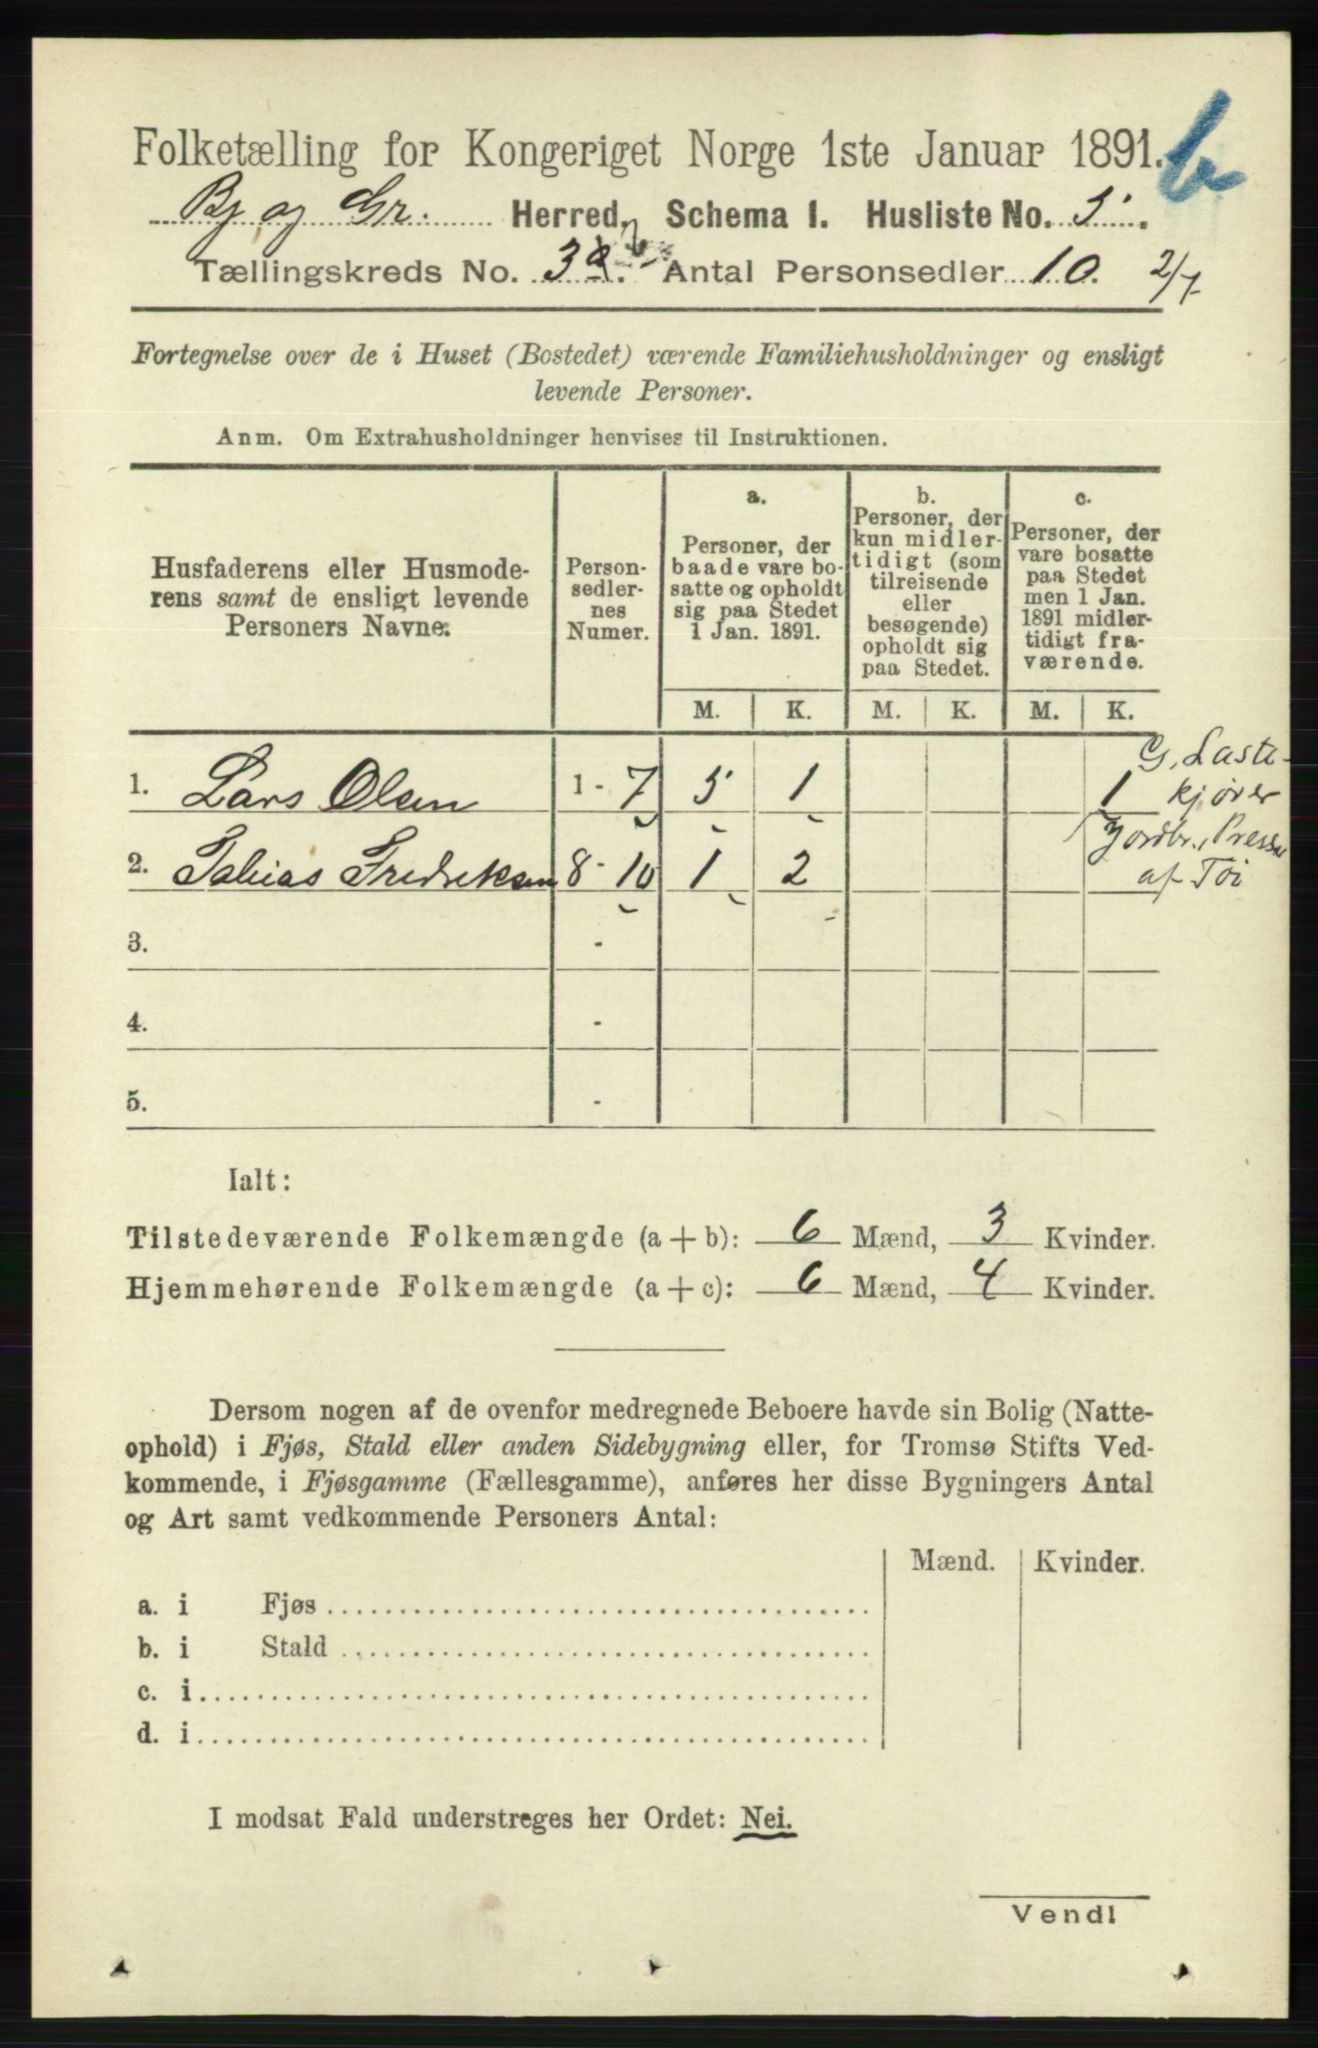 Folketælling for Kongeriget Norge 1ste Januar 1891.
b
Bj og Gr. Herred, Schema I. Husliste No. 5.
Tællingskreds No. 3 Antal Personsedler 10. 2/7
Fortegnelse over de i Huset (Bostedet) værende Familiehusholdninger og ensligt
levende Personer.
Anm. Om Extrahusholdninger henvises til Instruktionen.
Husfaderens eller Husmode-
rens samt de ensligt levende
Personers Navne.
Person-
sedler-
nes
Numer.
a.
Personer, der
baade vare bo-
satte og opholdt
sig paa Stedet
1 Jan. 1891.
b.
Personer, der
kun midler-
tidigt (som
tilreisende
eller
besøgende)
opholdt sig
paa Stedet.
c.
Personer, der
vare bosatte
paa Stedet
men 1 Jan.
1891 midler-
tidigt fra-
værende.
M. K. M. K. M. K.
1. Lars Olsen 1 - 7 5 1 1 G, Laste-
kjører
2. Tobias Fredriksen 8 - 10 1 2 Jordbr., Presser
af Tøi
3. -
4. -
5. -
Ialt:
Tilstedeværende Folkemængde (a + b): 6 Mænd, 3 Kvinder.
Hjemmehørende Folkemængde (a + c): 6 Mænd, 4 Kvinder.
Dersom nogen af de ovenfor medregnede Beboere havde sin Bolig (Natte-
ophold) i Fjøs, Stald eller anden Sidebygning eller, for Tromsø Stifts Ved-
kommende, i Fjøsgamme (Fællesgamme), anføres her disse Bygningers Antal
og Art samt vedkommende Personers Antal:
Mænd. Kvinder.
a. i Fjøs
b. i Stald
c. i
d. i
I modsat Fald understreges her Ordet: Nei.
Vend!